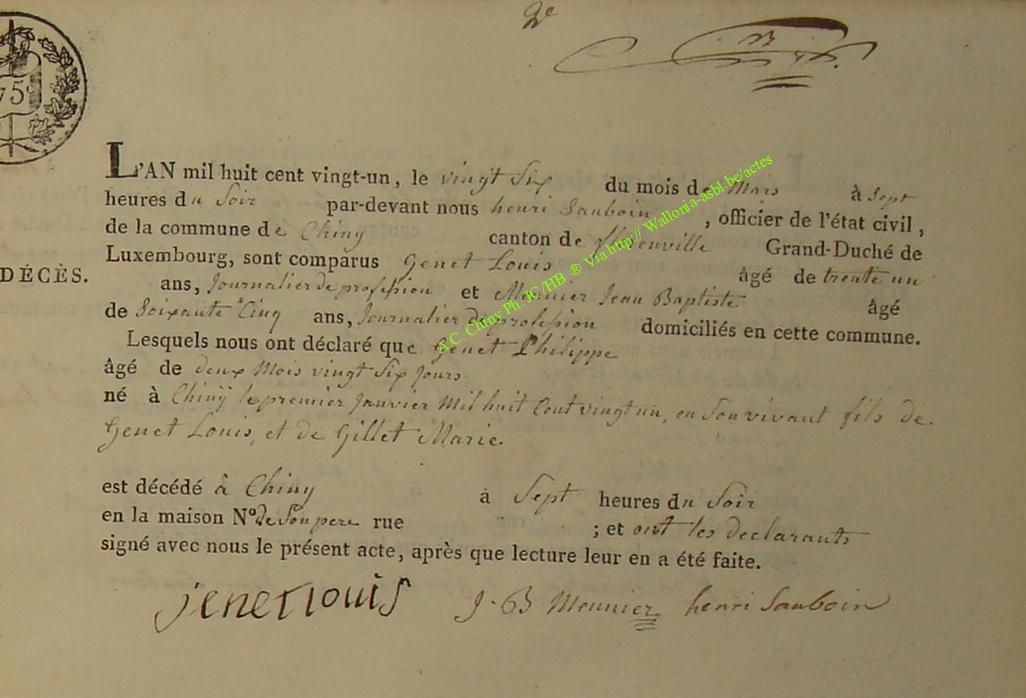 2e
75
L'AN mil huit cent vingt-un, le vingt Six du mois de Mars à Sept
heures du Soir par-devant nous henri Sauboin, officier de l'état civil,
de la commune de Chiny canton de florenville Grand-Duché de
DÉCÈS.
Luxembourg, sont comparus Genet Louis âgé de trente un
ans, Journalier de profession et Meunier Jean Baptiste âgé
de Soixante Cinq ans, Journalier de profession domiciliés en cette commune.
Lesquels nous ont déclaré que Genet Philippe
âgé de deux Mois vingt Six Jours
né à Chinÿ le premier Janvier Mil huit Cent vingt un, en Son vivant fils de
Genet Louis, et de Gillet Marie.
est décédé à Chiny à Sept heures du Soir
en la maison N° de Son pere rue ; et ont les declarants
signé avec nous le présent acte, après que lecture leur en a été faite.
jenet louis J. B Meunier henri Sauboin
A.C. Chiny Ph. JC/HB ® Via http:// Wallonia-asbl.be/actes